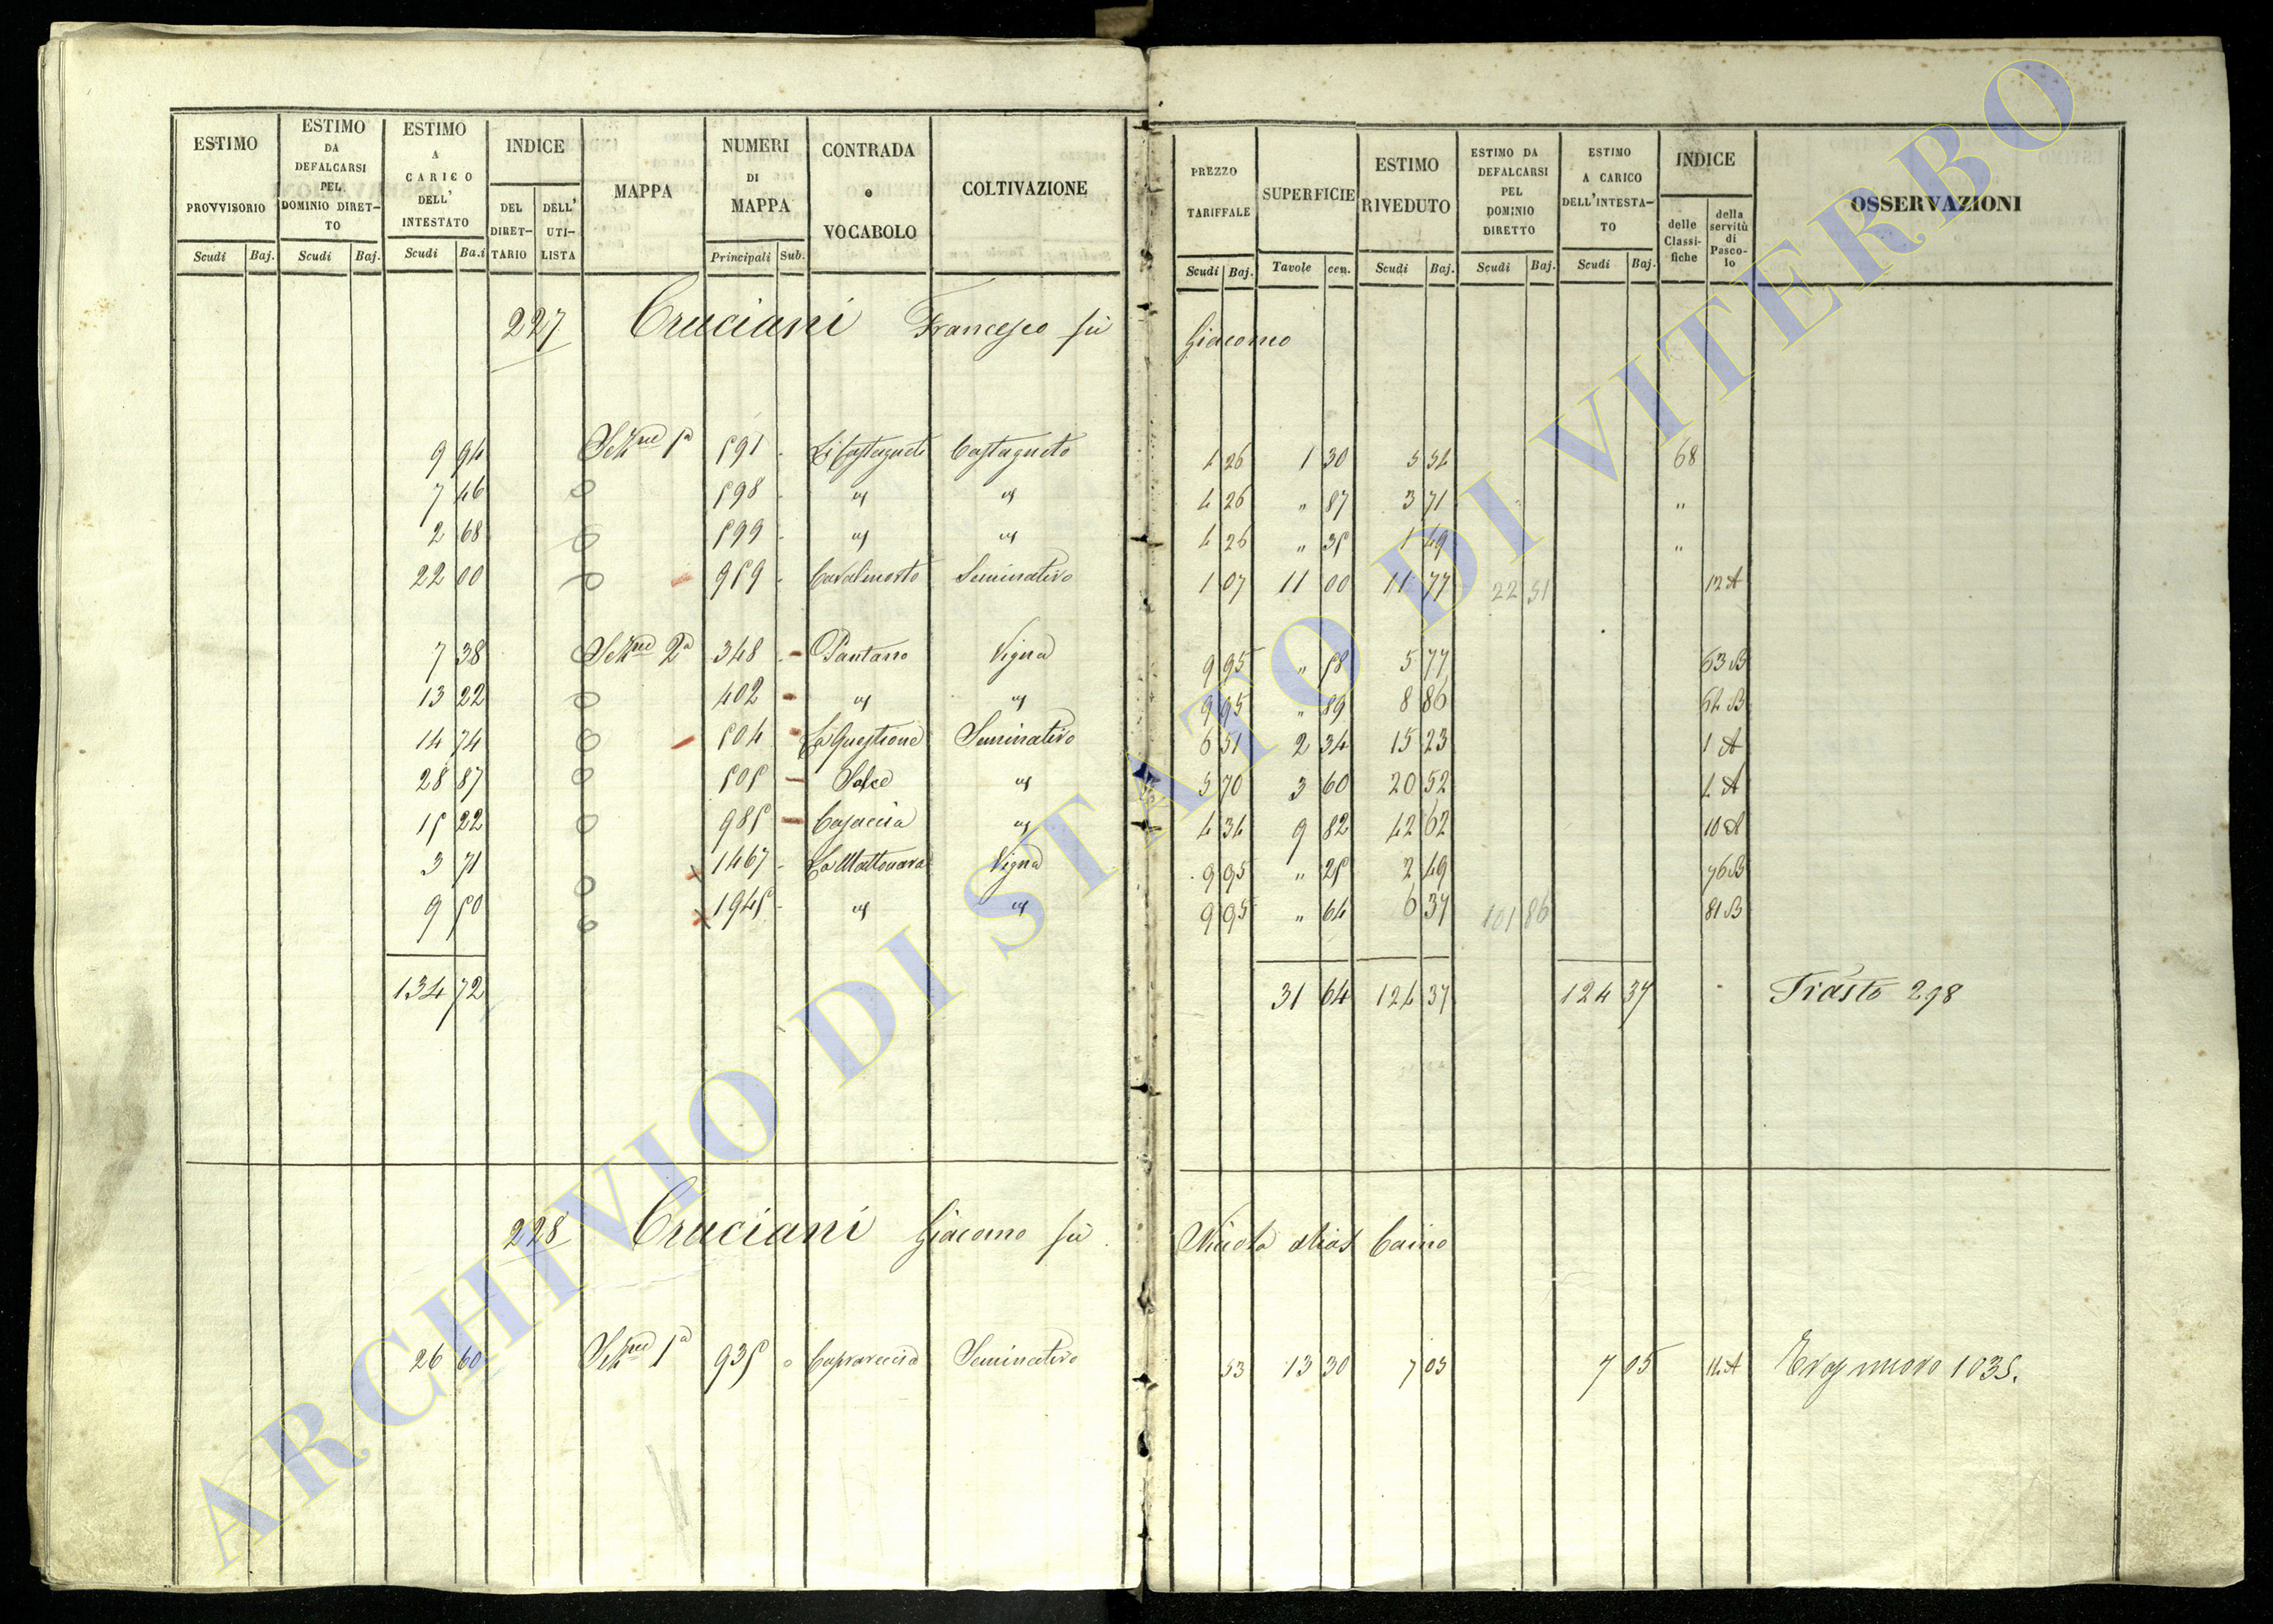 ESTIMO PROVVISORIO Scudi Baj.
ESTIMO DA DEFALCARSI PEL DOMINIO DIRET-TO Scudi Baj.
ESTIMO A CARICO DELL' INTESTATO Scudi Ba.i
INDICE DEL DIRET-TARIO DELL' UTI-LISTA
MAPPA
NUMERI DI MAPPA Principali Sub.
CONTRADA o VOCABOLO
COLTIVAZIONE
PREZZO TARIFFALE Scudi Baj.
SUPERFICIE Tavole cen.
ESTIMO RIVEDUTO Scudi Baj.
ESTIMO DA DEFALCARSI PEL DOMINIO DIRETTO Scudi Baj.
ESTIMO A CARICO DELL'INTESTA-TO Scudi Baj.
INDICE delle Classi-fiche della servitù di Pasco-lo
OSSERVAZIONI
227 Cruciani Francesco fù Giacomo
9 94 Sezne 1a 591 Li Castagneti Castagneto 4 26 1 30 5 54 68
7 46 598 " " 4 26 " 87 3 71 "
2 68 599 " " 4 26 " 35 1 49 "
22 00 959 Cavalmorto Seminativo 1 07 11 00 11 77 22 51 12 A
7 38 Sezne 2a 348 Pantano Vigna 9 95 " 58 5 77 63 B
13 22 402 " " 9 95 " 89 8 86 64 B
14 74 504 La Questione Seminativo 6 51 2 34 15 23 1 A
28 87 505 Salce " 5 70 3 60 20 52 4 A
15 22 985 Casaccia " 4 34 9 82 42 62 10 A
3 71 1467 La Mattonara Vigna 9 95 " 25 2 49 76 B
9 50 1945 " " 9 95 " 64 6 37 101 86 81 B
134 72 31 64 124 37 124 37 Trasto 298
228 Cruciani Giacomo fù Nicola alias Caino
26 60 Sezne 1a 935 Caprareccia Seminativo 53 13 30 7 05 7 05 14 A nuovo 1035.
ARCHIVIO DI STATO DI VITERBO